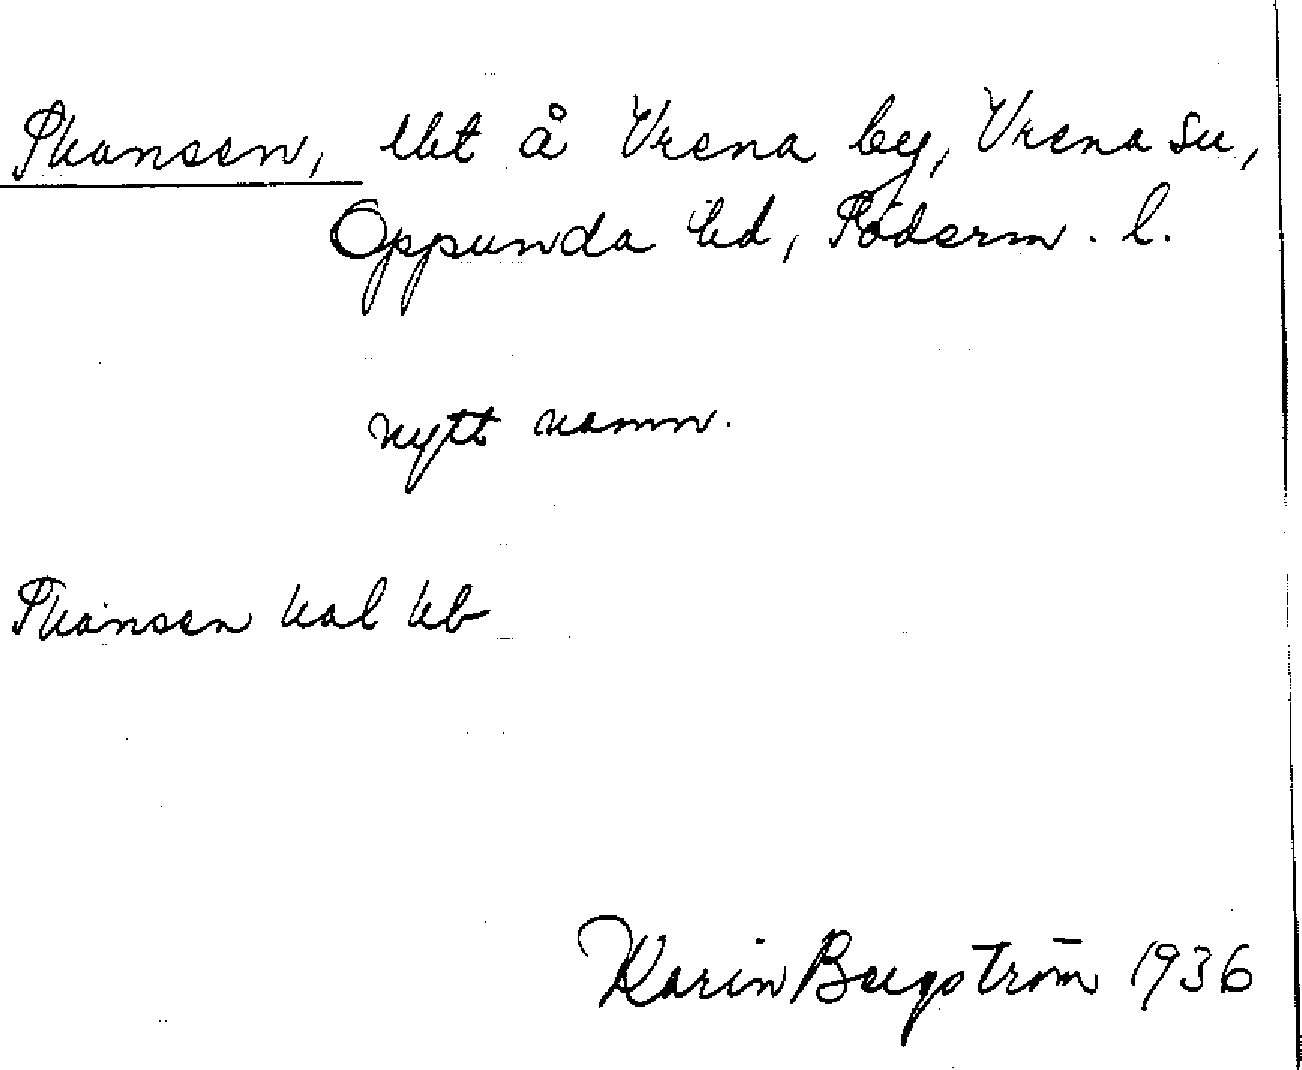 Skansen, lht å Vrena by, Vrena sn,
Oppunda hd, Söderm. l.
nytt namn.
Skansen hal kb
Karin Bergström 1936